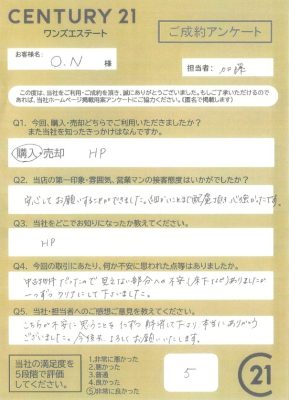 CENTURY 21
ワンズエステート
ご成約アンケート
お客様名:
O.N 様
担当者: 加藤
この度は、当社をご利用・ご成約を頂き、誠にありがとうございました。もしご了承いただけるので
あれば、当社ホームページ掲載用アンケートにご協力ください。(匿名で掲載します)
Q1. 今回、購入・売却どちらでご利用いただきましたか?
また当社を知ったきっかけはなんですか。
購入・売却 HP
Q2. 当店の第一印象・雰囲気、営業マンの接客態度はいかがでしたか?
安心してお願いすることができました。細かいことまで配慮頂き心強かったです。
Q3. 当社をどこでお知りになったか教えてください。
HP
Q4. 今回の取引にあたり、何か不安に思われた点等はありましたか。
中古物件だったので見えない部分への不安(床下など)ありましたが
一つずつクリアにして下さいました。
Q5. 当社・担当者へのご感想ご意見を教えてください。
こちらが不安に思うことを 解消して下さり 本当にありがとう
ございました。今後共よろしくお願いいたします。
当社の満足度を
5段階で評価
してください。
1.非常に悪かった
2.悪かった
3.普通
4.良かった
5.非常に良かった
5
21